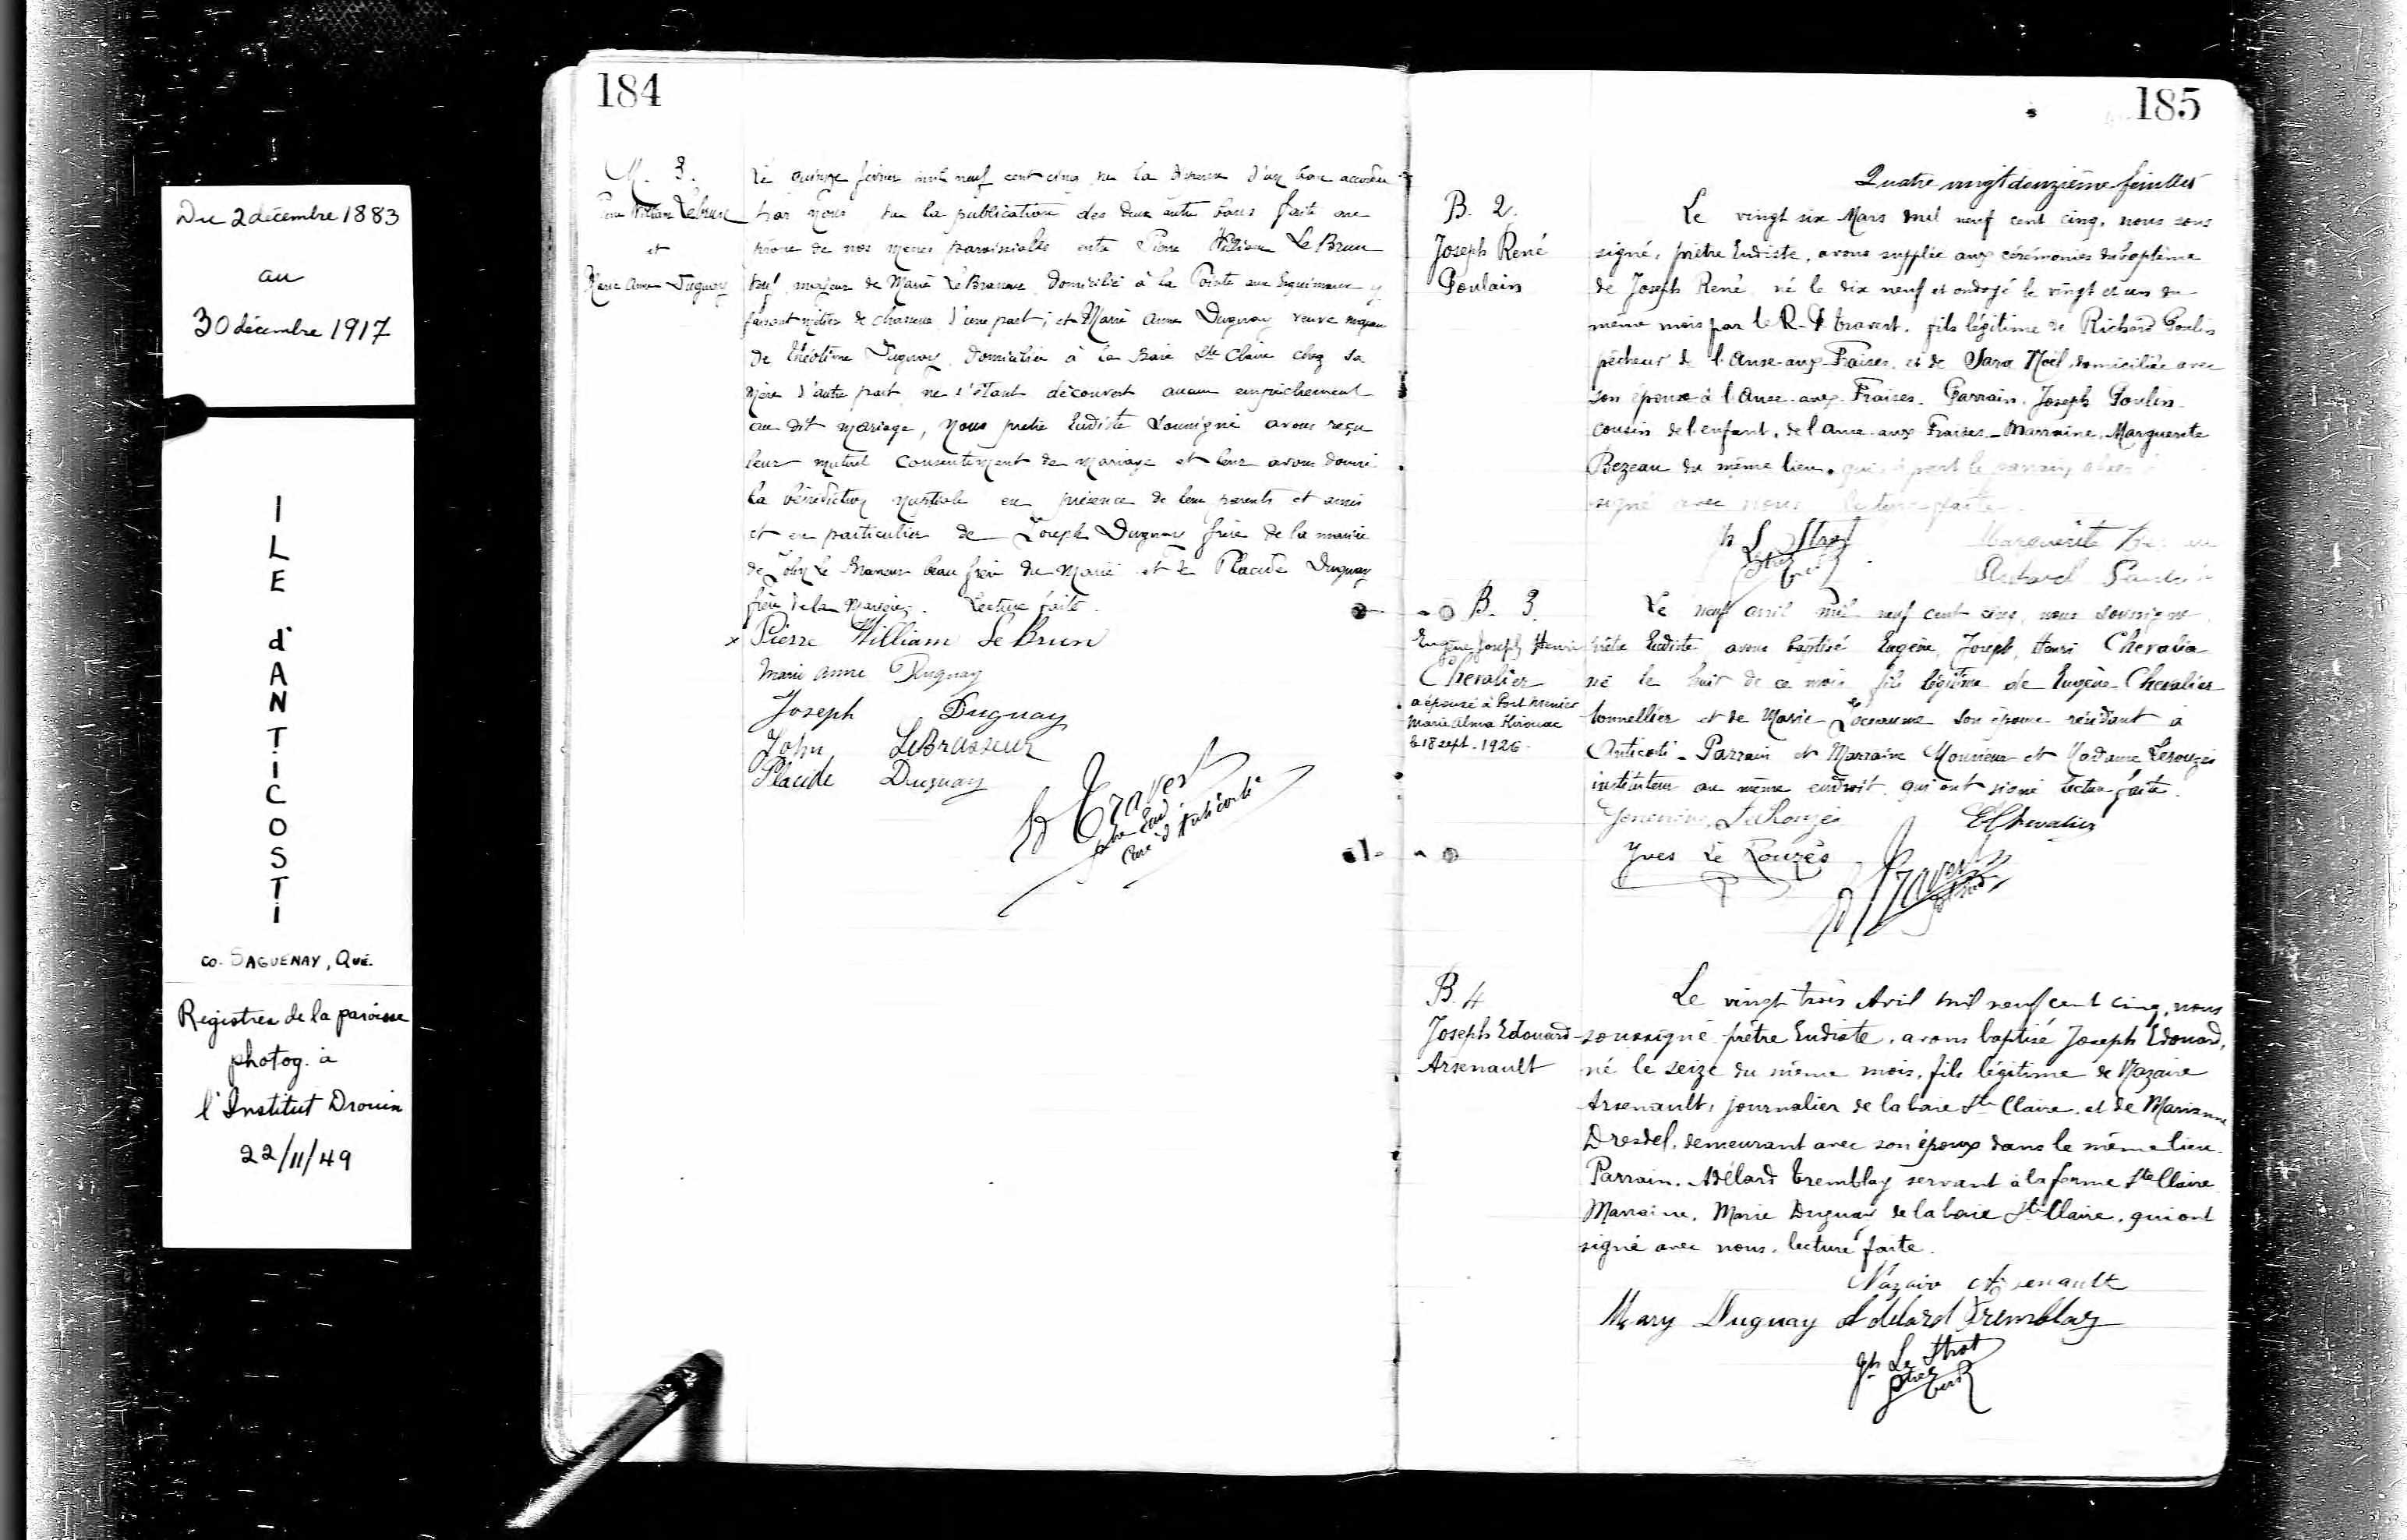 Du 2 décembre 1883
au
30 décembre 1917
ILE d'ANTICOSTI
co. SAGUENAY, Qué.
Registres de la paroisse
photog. à
l'Institut Drouin
22/11/49
184
M. 3.
Pierre William Lebrun
et
Marie Anne Duguay
Le quinze février mil neuf cent cinq, vu la dispense d'un ban accordée
par nous vu la publication des deux autres bans faite au
prône de nos messes paroissiales entre Pierre William Le Brun
veuf majeur de Marie Le Brasseur domicilié à la Pointe aux Esquimaux y
faisant métier de chasseur d'une part; et Marie Anne Duguay veuve majeure
de Théotime Duguay, domiciliée à la Baie Ste Claire chez sa
mère d'autre part, ne s'étant découvert aucun empêchement
au dit mariage, Nous prêtre Eudiste soussigné avons reçu
leur mutuel consentement de mariage et leur avons donné
la bénédiction nuptiale en présence de leurs parents et amis
et en particulier de Joseph Duguay frère de la mariée
de John Le Brasseur beau frère du Marié et de Placide Duguay
frère de la Mariée. Lecture faite.
x Pierre William Le Brun
Marie anne Duguay
Joseph Duguay
John LeBrasseur
Placide Duguay
Travert
ptre Eud
Curé d'Anticosti
185
Quatre vingt douzième feuillet
B. 2.
Joseph René
Poulain
Le vingt six Mars mil neuf cent cinq, nous sous
signé, prêtre Eudiste, avons supplée aux cérémonies du baptême
de Joseph René né le dix neuf et ondoyé le vingt et un du
même mois par le R. P. Travert. fils légitime de Richard Poulin
pêcheur de l'Anse-aux-Fraises. et de Sara Noël, domiciliée avec
son époux à l'Anse-aux-Fraises. Parrain. Joseph Poulin
cousin de l'enfant, de l'Anse-aux Fraises - Marraine, Marguerite
Bezeau du même lieu. qui à part le parrain absent
signé avec nous lecture faite.
Jh Le Strat
Ptre Eud
Marguerite
B. 3.
Eugène Joseph Henri
Chevalier
a épousé à Port Menier
Marie Alma Kirouac
le 18 sept. 1926.
Le neuf avril mil neuf cent cinq, nous soussigné
prêtre Eudiste avons baptisé Eugène, Joseph, Henri Chevalier
né le huit de ce mois fils légitime de Eugène Chevalier
tonnellier et de Marie son épouse résidant à
Anticosti - Parrain et Marraine Monsieur et Madame Lerouzès
instituteur au même endroit, qui ont signé lecture faite.
E Chevalier
Yves Le Rouzès
Travert
B. 4
Joseph Edouard
Arsenault
Le vingt trois Avril mil neuf cent cinq, nous
soussigné prêtre Eudiste, avons baptisé Joseph Edouard,
né le seize du même mois, fils légitime de Nazaire
Arsenault, journalier de la baie Ste Claire. et de Marianne
Dresdel, demeurant avec son époux dans le même lieu.
Parrain. Adélard Tremblay servant à la ferme Ste Claire
Marraine. Marie Duguay de la baie Ste Claire. qui ont
signé avec nous. lecture faite.
Nazaire Arsenault
Mary Duguay Adelard Tremblay
Jh Le Strat
Ptre Eud